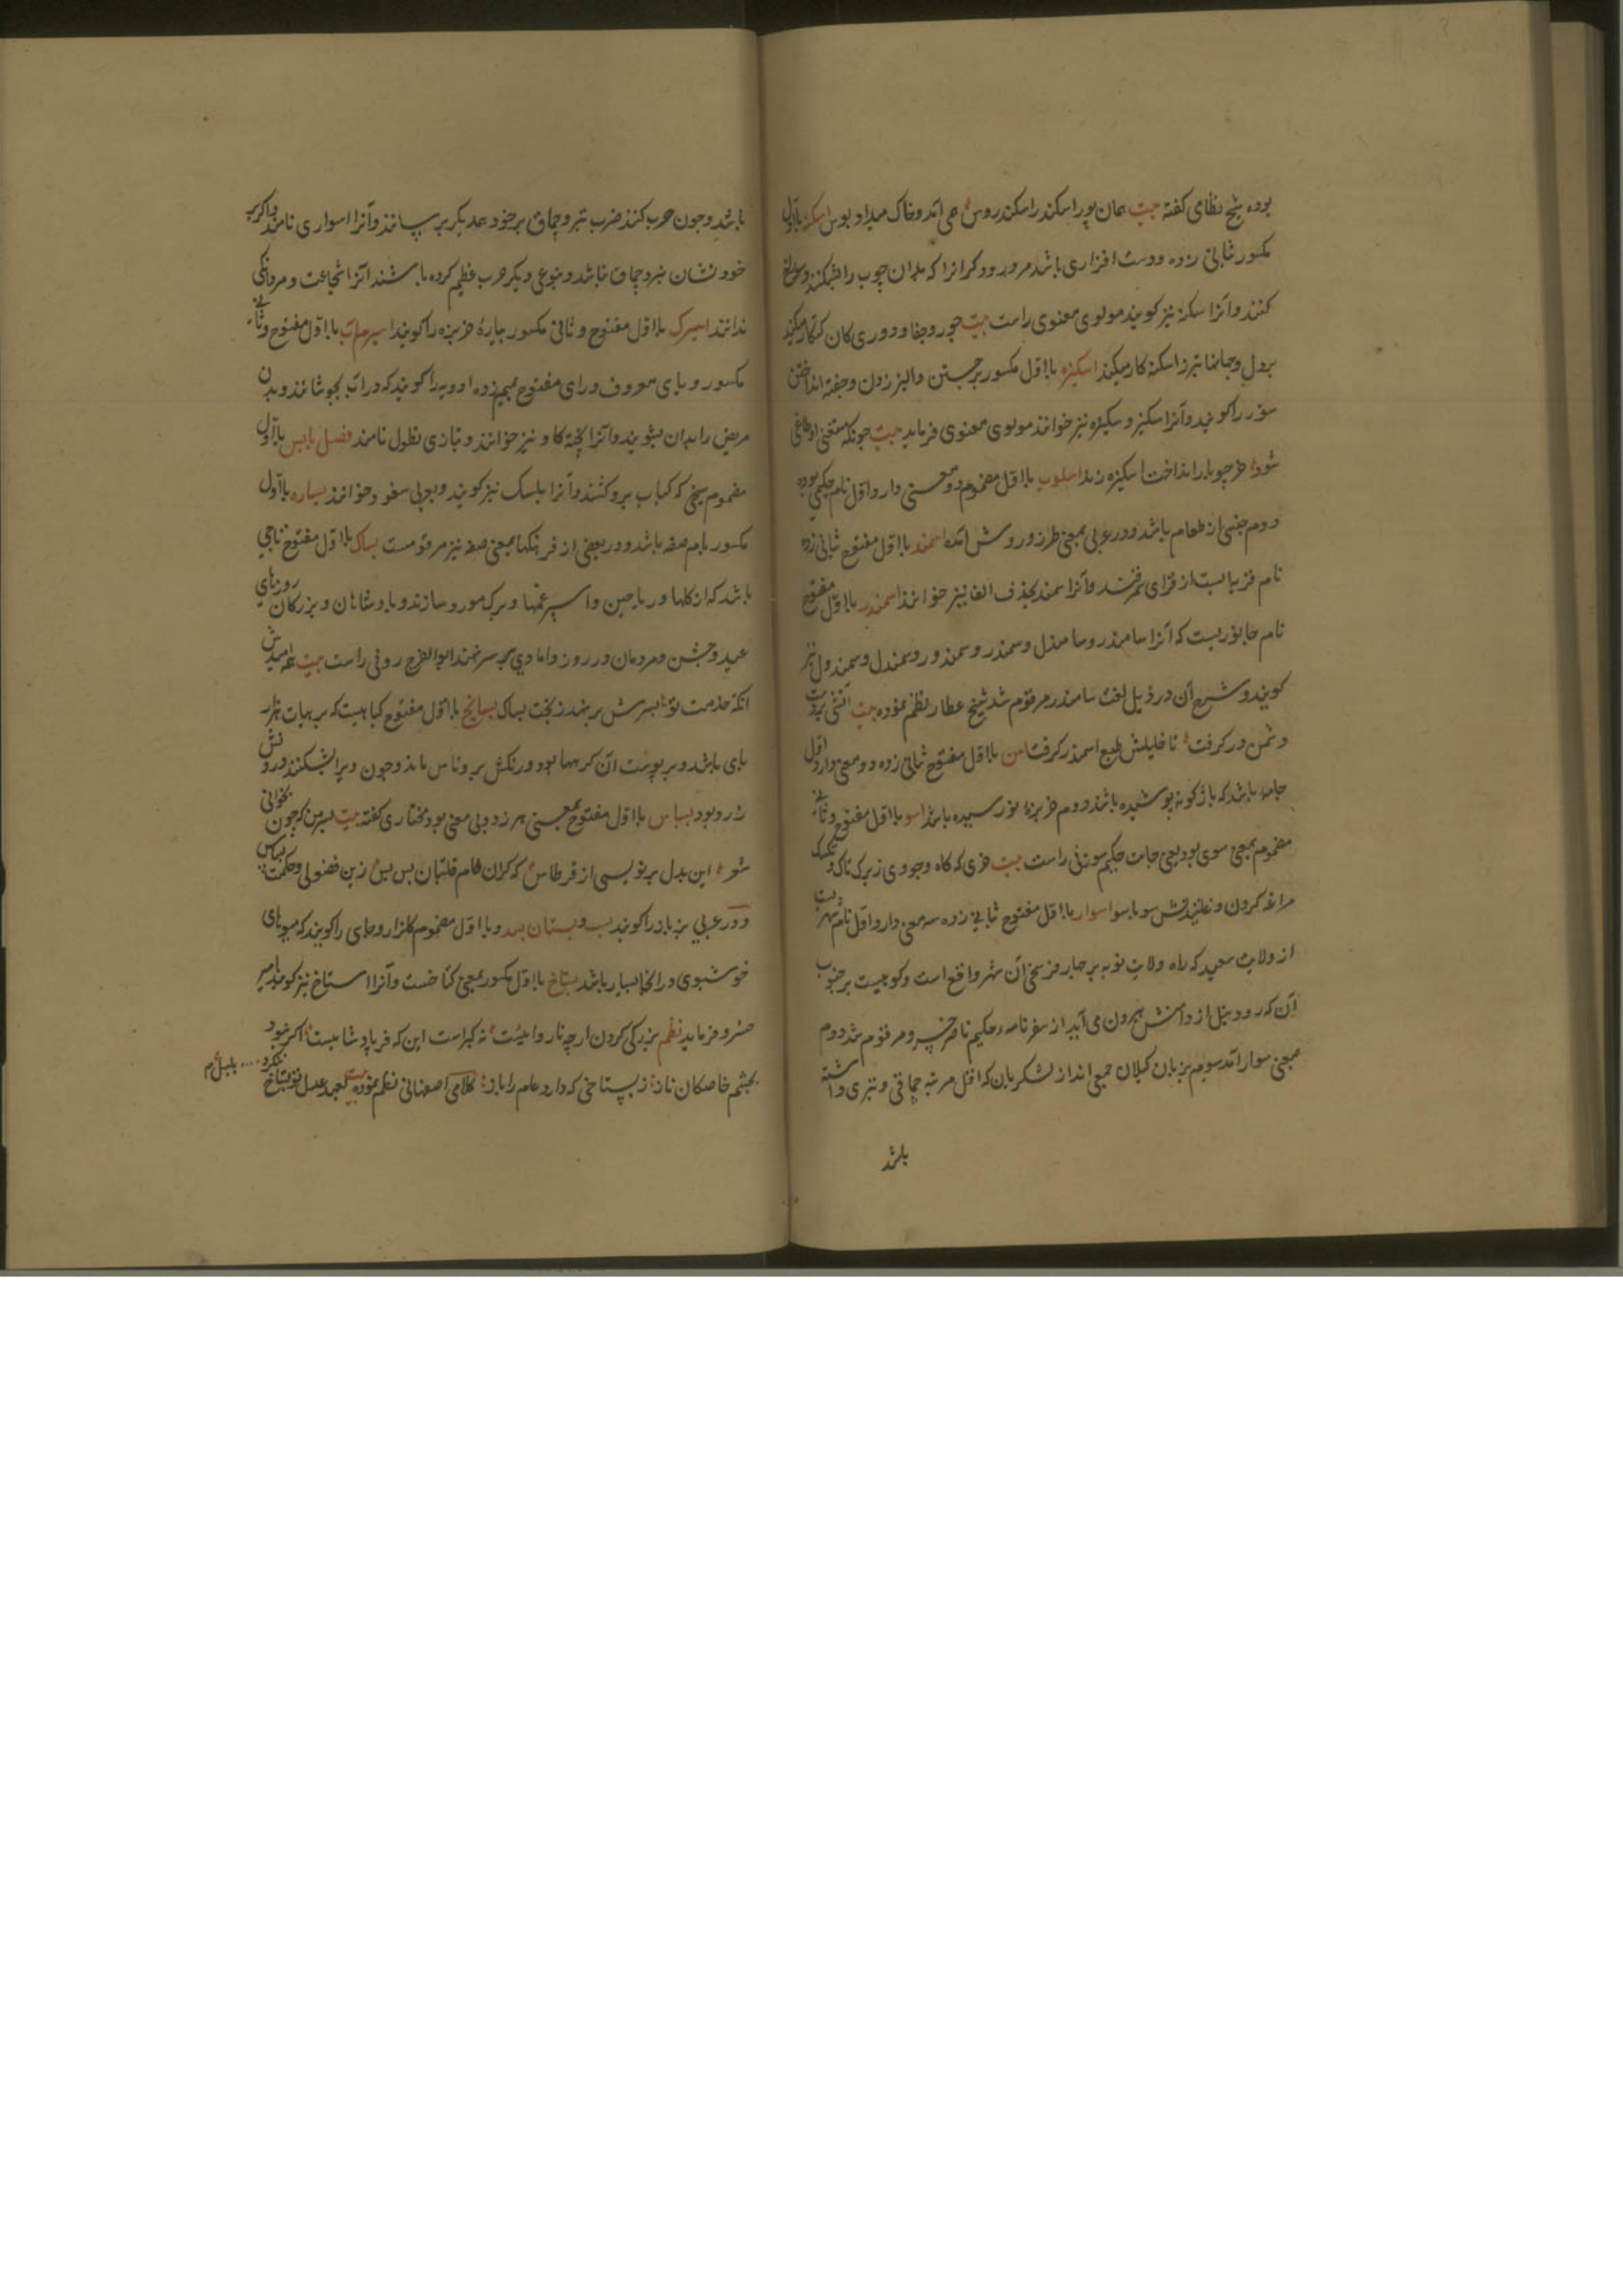 بوده شیخ نظامی گفته بیت همان پور اسکندر اسکندروس همی آمد و خاک میداد بوس اسکنه با اول
مکسور بثانی زده دست افزاری باشد مر درودگرانرا که بدان چوب را بشکنند و سوراخ
کنند و آنرا سکنه نیز کویند مولوی معنوی راست بیت جور و جفا و دوری کان کنکار میکند
بر دل و جانها تبر ز اسکنه کار میکند اسکیزه با اول مکسور برجستن و آلیز زدن و جفته انداختن
ستور را کویند و آنرا سکیز و سکیزه نیز خوانند مولوی معنوی فرماید بیت چونکه مستغنی او طاغی
شود خر چو بار انداخت اسکیزه زند اسلوب با اول مضموم دو معنی دارد اول نام حکیمی بوده
دوم جنسی از طعام باشد و در عربی بمعنی طرز و روش آمده اسمند با اول مفتوح بثانی زده
نام قریه ایست از قرای سمرقند و آنرا سمند بحذف الف نیز خوانند اسمندر با اول مفتوح
نام جانوریست که آنرا سامندر و سامندل و سمندر و سمندور و سمندل و سمندول نیز
کویند و شرح آن در ذیل لغت سامندر مرقوم شد شیخ عطار نظم نموده بیت آتشی نمرود
دشمن در گرفت تا خلیلش طبع اسمندر گرفت اسن با اول مفتوح بثانی زده دو معنی دارد اول
جامه باشد که باژکونه پوشیده باشند دوم خربزه نورسیده باشد اسو با اول مفتوح و ثانی
مضموم بمعنی سوی بود یعنی جانب حکیم سوزنی راست بیت خری که کاه و جو وی ز برک تاک و
مراغه کردن و غلیدنش سو باسو اسوار با اول مفتوح بثانی زده سه معنی دارد اول نام شهریست
از ولایت سعید که راه ولایت نوبه بر چهار فرسخی آن شهر واقع است و کوهیست بر جنوب
آن که رود نیل از دامنش بیرون می آید از سفرنامه حکیم ناصرخسرو مرقوم شد دوم
بمعنی سوار آمد سوم بزبان کیلان جمعی اند از لشکریان که اول مرتبه چماقی و تبری داشته
باشد
باشد و چون حرب کنند ضرب تبر و چماق بر خود همدیکر برسانند و آنرا اسواری نامند و اگر بر
خود نشان تبر و چماق نباشد و بنوعی دیگر حرب عظیم کرده باشند آنرا شجاعت و مردانکی
ندانند اسیرک با اول مفتوح و ثانی مکسور پاره خربزه را کویند با اول مفتوح و ثانی
مکسور و یای معروف و رای مفتوح بمیم زده ادویه را کویند که در آب بجوشانند و بدن
مریض را بدان بشویند و آنرا پخته کاو نیز خوانند و بتازی نطول نامند فصل با بس با اول
مضموم سیخی که کباب برو کشند و آنرا بلسک نیز کویند و بعربی سفود خوانند بساره با اول
مکسور بام صفه باشد و در بعضی از فرهنکها بمعنی صفه نیز مرقومست بساک با اول مفتوح تاجی
باشد که از کلها و ریاحین و اسپرغمها و برک مورد سازند و پادشاهان و بزرکان روزهای
عید و جشن و مردمان در روز دامادی بر سر نهند ابوالفرج رونی راست بیت همه امیدش
آنکه خدمت تو بسرش بر نهد ز بخت بساک بسپایج با اول مفتوح کیاهیست که بر هیأت هزار
پای باشد و بر پوست آن کرهها بود و رنکش بروناس ماند و چون ویرا بشکنند درونش
زرد بود بسباس با اول مفتوح بمعنی هرزه و بی معنی بود مختاری گفته بیت پس من که چون بخوانی
شعر این بدل بر نویسی از قرطاس که کران فام قلتبان بس بس زین فضولی و حکمت بسباس
و در عربی بزباز را کویند بست و بستان بد و با اول مضموم کلزار و جای را کویند که میوهای
خوشبوی در آنجا بسیار باشد بستاخ با اول مکسور بمعنی کستاخست و آنرا استاخ نیز کویند امیر
خسرو فرماید نظم بزرکی کردن ارچه ناروا نیست نه کبر است این که فر پادشاهیست اگر نبود
بچشم خاصکان ناز ز بستاخی که دارد عام را باز کلامی اصفهانی نظم نموده بیت بعهد عدل تو بستاخ
نکرد .... بلبل م